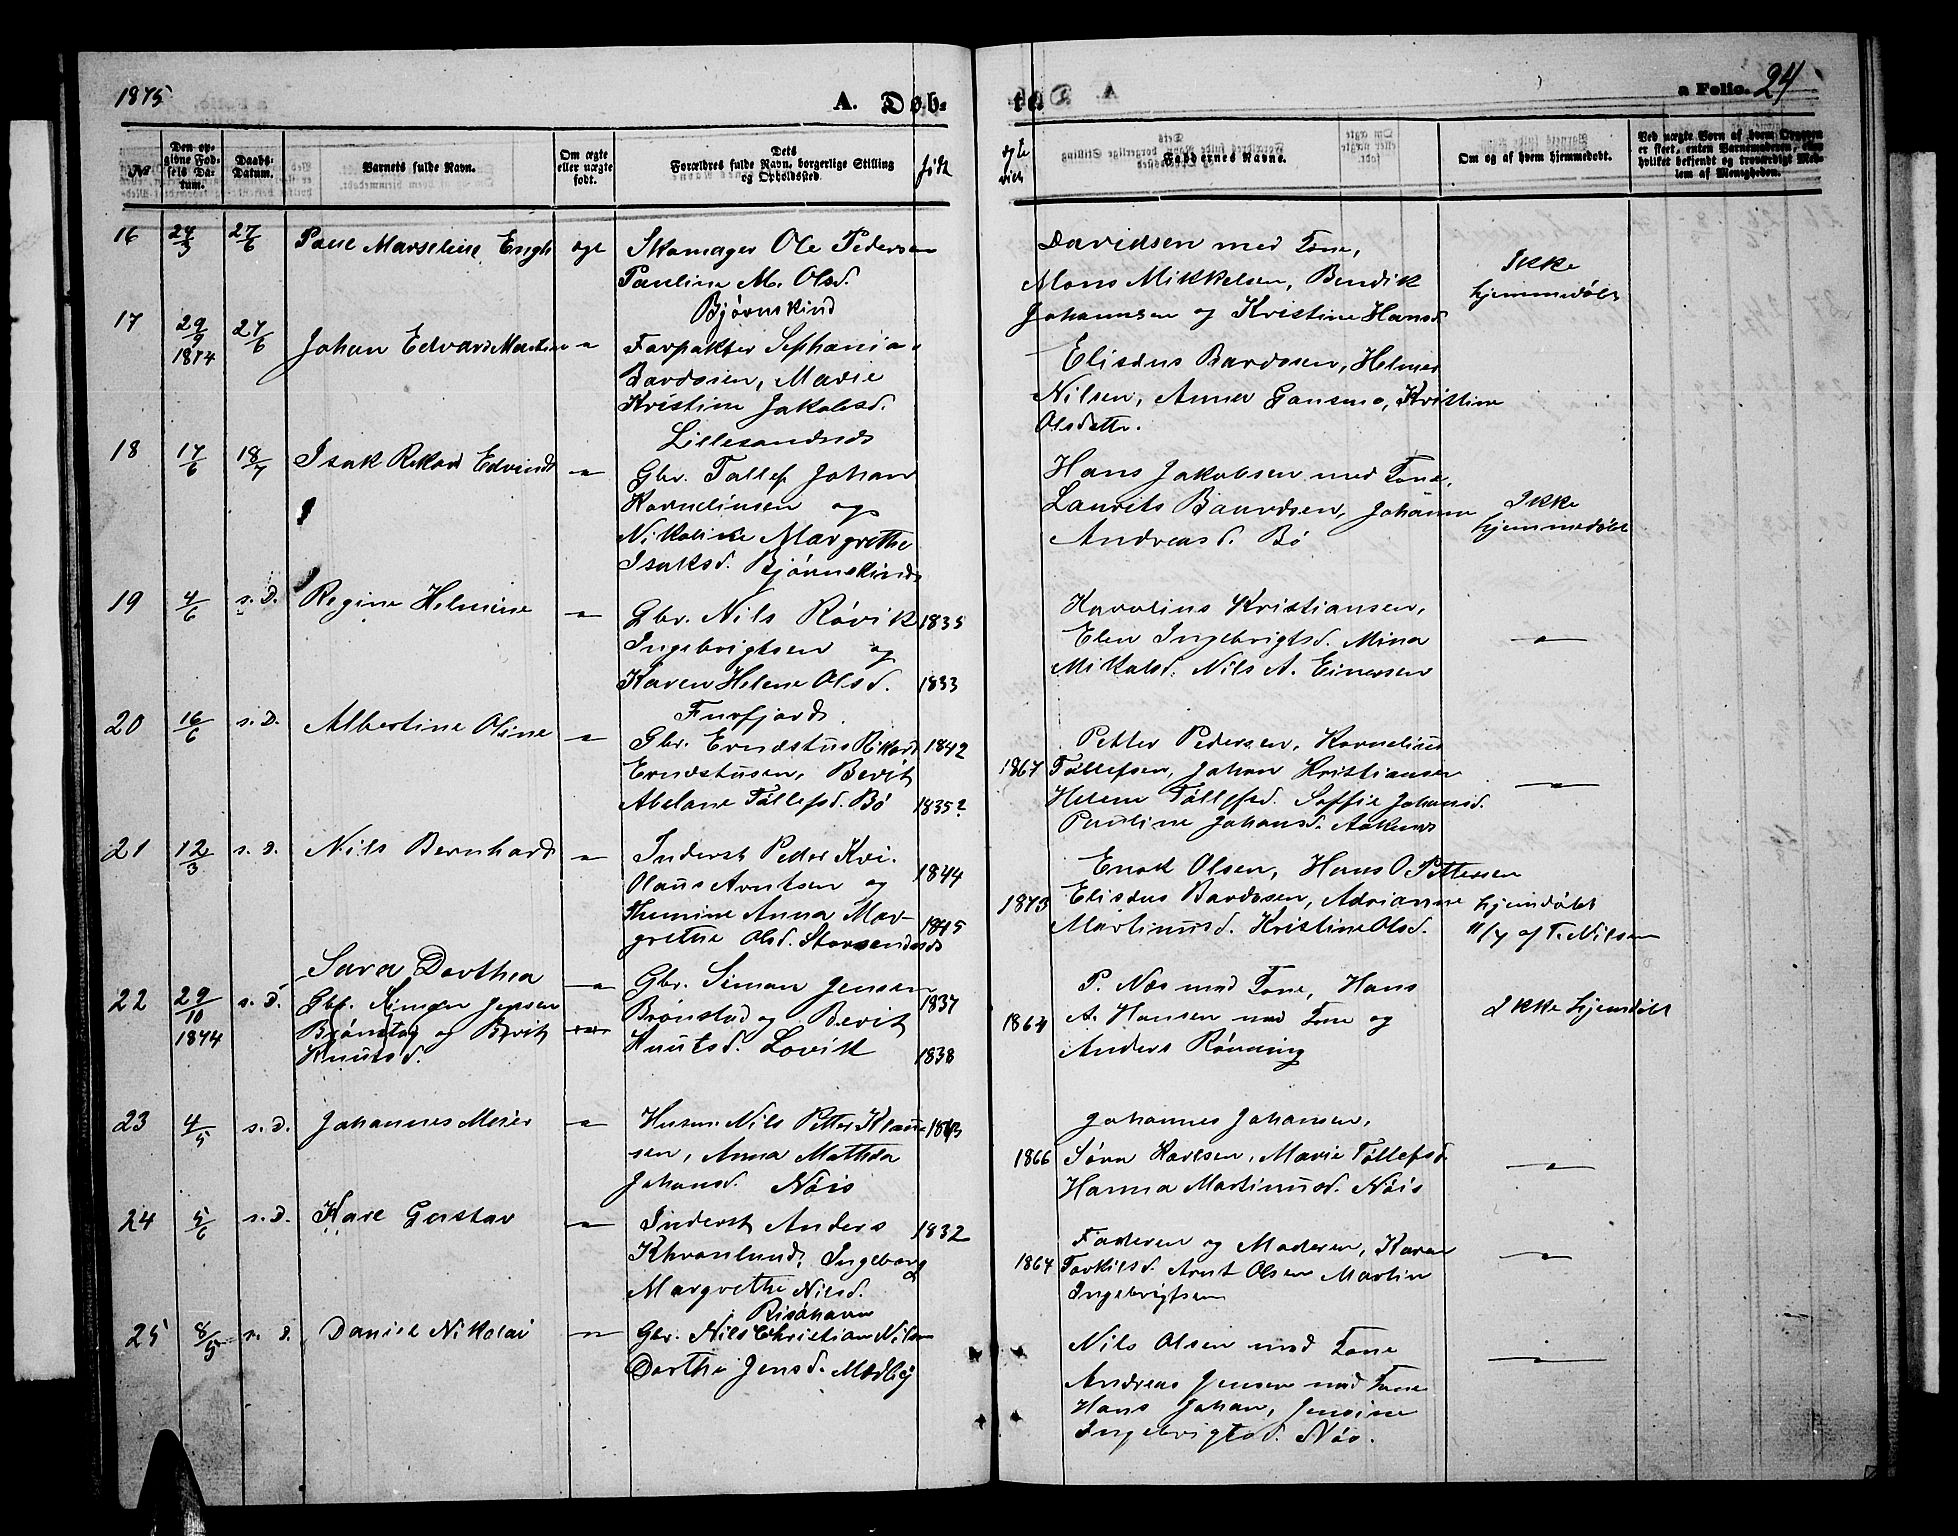 1875
A. Døb-
te.
a Folio. 24
No
Den op-
givne Fød-
sels Da-
tum.
Daabs-
Datum.
Barnets fulde Navn.
Om ægte
eller uægte
født.
Dets
Forældres fulde Navn, borgerlige Stilling
og Opholdssted.
født
ægte
viet
Faddernes Navne.
Om og af hvem hjemmedøbt.
Ved uægte Børn af hvem Opgaven
er skeet, enten Barnemoderen, eller
hvilket bekjendt og troværdigt Med-
lem af Menigheden.
16 24/3 27/6 Paul Marselius Engh ægt Skomager Ole Pedersen
Pauline M. Olsd.
Bjørnskind
Davidsen med Kone,
Mons Mikkelsen, Bendik
Johannsen og Kristine Hansd.
Ikke
hjemmedøbt
17 29/9 1874 27/6 Johan Edvard Martin – " – Forpakter Sephanias
Bardosen, Marie
Kristine Jakobsd.
Lillesandnes
Elisæus Bardosen, Helmer
Nilsen, Anna Gansmo, Kristine
Olsdatter.
18 17/6 18/7 Isak Rikard Edvind – " – Gbr. Tollef Johan
Kornelinsen og
Nikoline Margrethe
Isaksd. Bjørnskind
Hans Jakobsen med Kone,
Laurits Baardsen, Johanna
Andreasd. Bø
Ikke
hjemmedøbt
19 4/6 s. D. Regine Helmine – " – Gbr. Nils Røvik 1835
Ingebrigtsen og
Karen Helene Olsd. 1833
Furfjord.
Karolius Kristiansen,
Elen Ingebrigtsd. Mina
Mikalsd. Nils A. Einersen
– " –
20 16/6 s. D. Albertine Oline – " – Gbr. Erndstus Rikard 1842
Erndstusen, Berit
Abelone Tollefsd. Bø 1835?
1867
Petter Pedersen, Kornelius
Tollefsen, Johan Kristiansen
Helene Tollefsd. Soffie Johansd.
Pauline Johansd. Aaknes
– " –
21 12/3 s. D. Nils Bernhard – " – Inderst Peder Kri- 1844
Olaus Arntsen og
Themine Anna Mar- 1845
grethe Olsd. Storsandnes
1873
Enok Olsen, Hans O Pettersen
Elisæus Bardosen, Adrianne
Martinusd. Kristine Olsd.
hjemdøbt
11/4 af T. Nilsen
22 29/10 1874 s. D. Sara Dorthea – " –
Gbr. Simon Jensen
Brønstad og Berit
Knutsd.
Gbr. Simon Jensen 1837
Brønstad og Berit
Knutsd. Lovik 1838
1864
P. Næs med Kone, Hans
A. Hansen med Kone og
Anders Rønning
Ikke hjemdøbt
23 4/5 s. D. Johannes Meier – " – Husm. Nils Petter Klau- 1843
sen, Anna Mathea
Johansd. Nøis
1866
Johannes Johansen,
Søren Karlsen, Marie Tollefsd.
Hanna Martinusd. Nøis
– " –
24 5/6 s. D. Karl Gustav – " – Inderst Anders 1832
Khvanlund, Ingeborg
Margrethe Nilsd.
Risøhavn
1864
Faderen og Moderen, Karen
Torkilsd. Arnt Olsen Martin
Ingebrigtsen
– " –
25 8/5 s. D. Daniel Nikolai – " – Gbr. Nils Christian Nilsen
Dorthe Jensd. Medby
Nils Olsen med Kone
Andreas Jensen med Kone
Hans Johan, Jensine
Ingebrigtsd. Nøs.
– " –